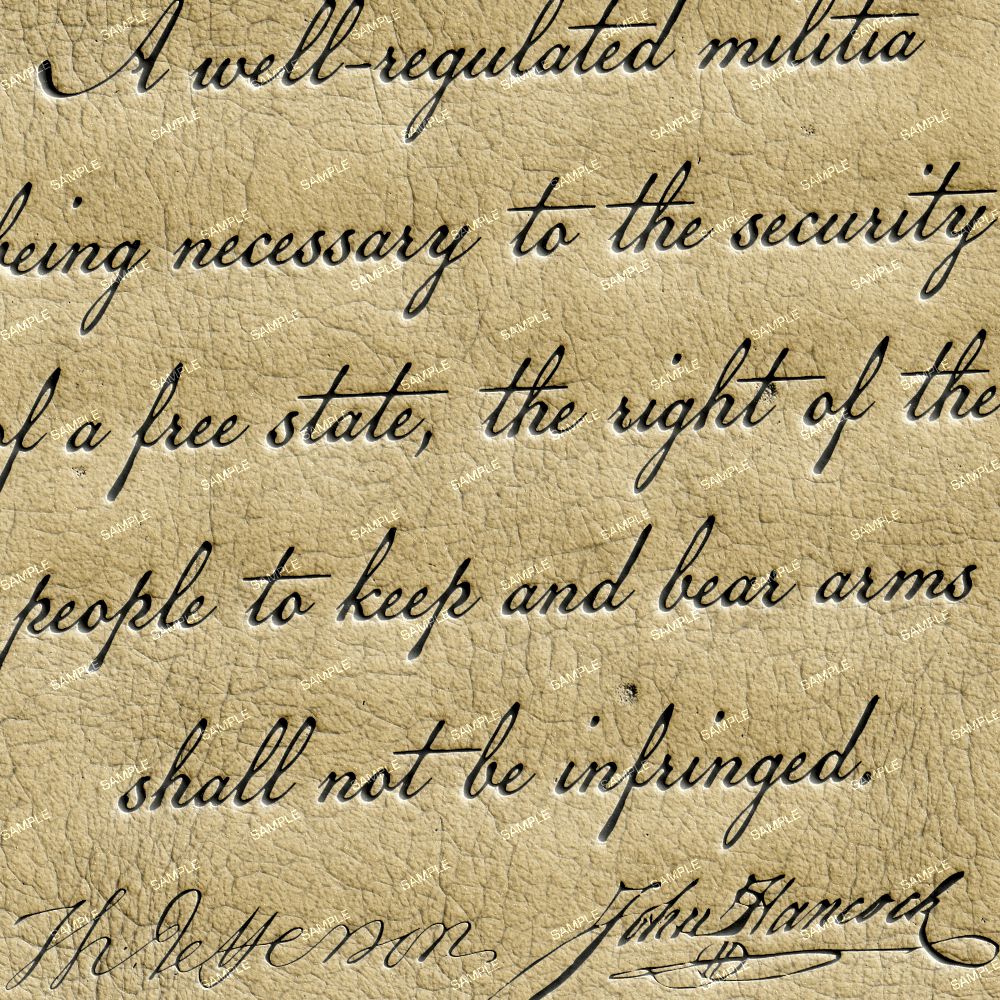 A well-regulated militia
being necessary to the security
of a free state, the right of the
people to keep and bear arms
shall not be infringed.
Th. Jefferson John Hancock
SAMPLE